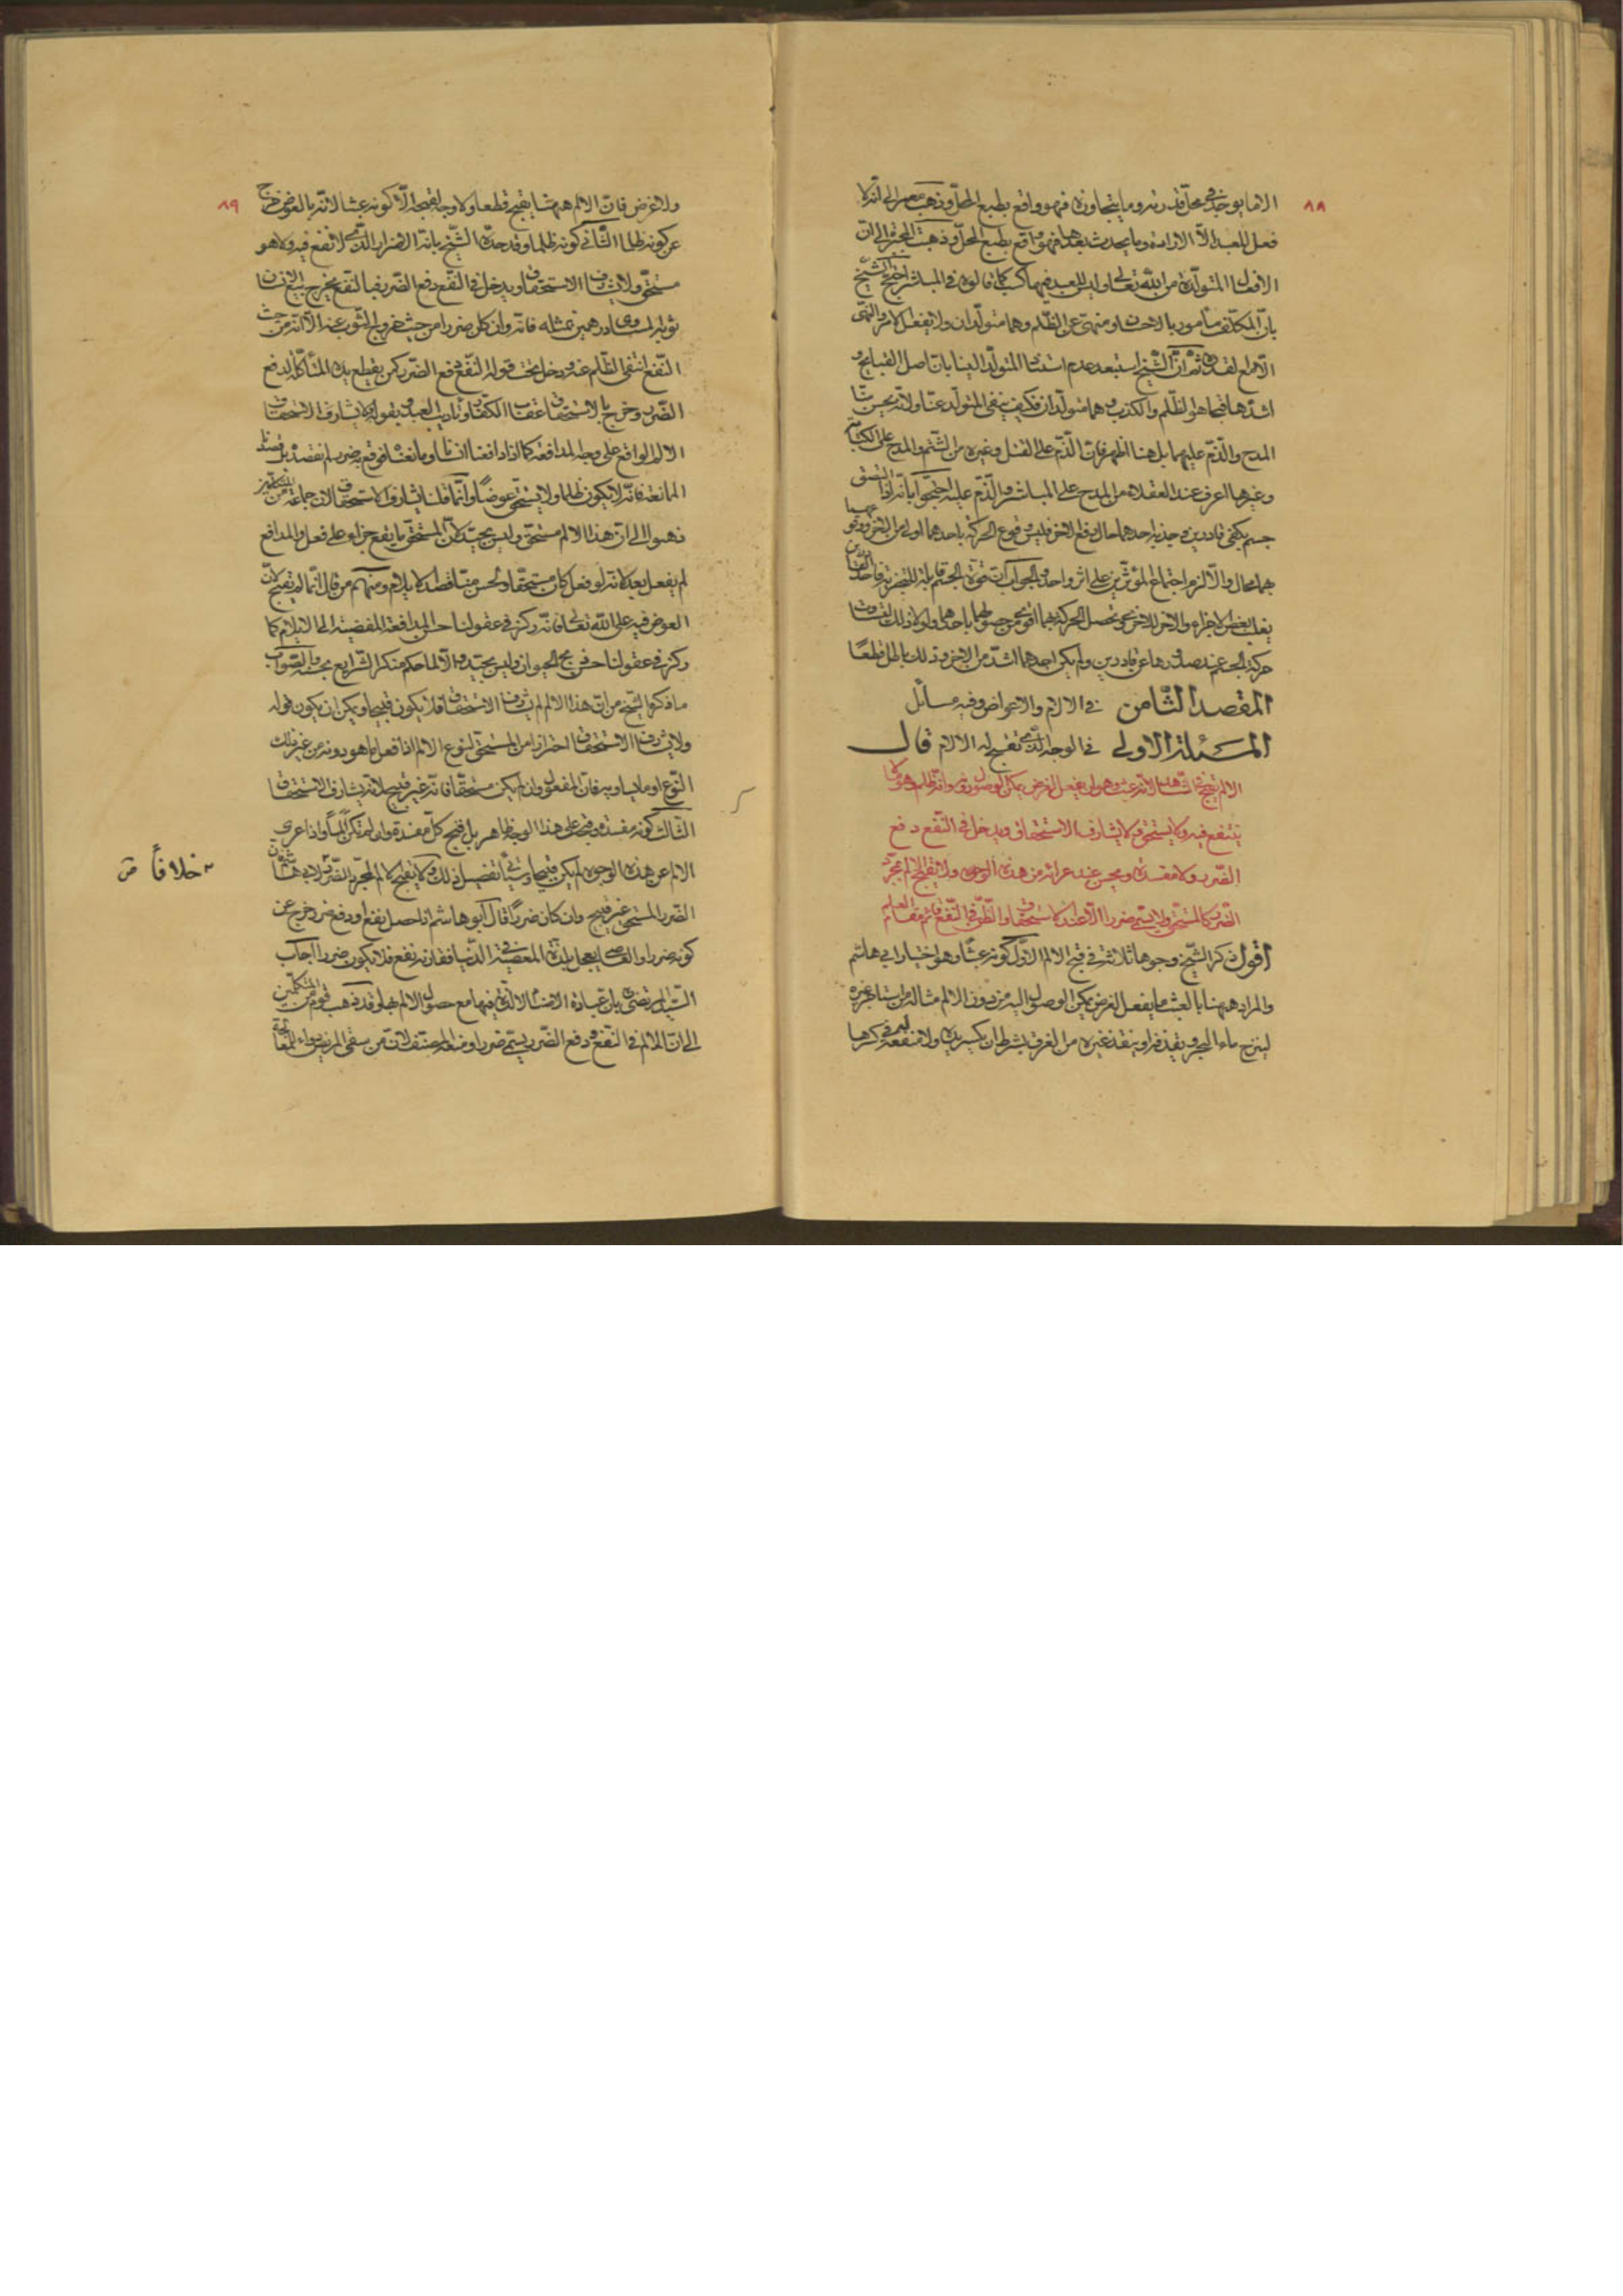 ٨٨
الا ما يوجد في محل قدرته وما يتجاوزه فهو واقع بطبع المحل وذهب معمر الى انه لا
فعل للعبد الا الارادة وما يحدث بعدها فهو واقع بطبع المحل وذهبت المجبرة الى ان
الافعال المتولدة من الله تعالى وليس للعبد فيها كسب كما قالوه في المباشر احتج الشيخ
بان المكلف مأمور بالاحسان ومنهي عن الظلم وهما متولدان ولا يفعل الامر والنهي
الا مع القدرة ثم ان الشيخ استبعد عدم استناد المتولد الينا بان اصل القبايح و
اشدها قبحا هو الظلم والكذب وهما متولدان فكيف ينفى المتولد عنا ولانه يحسن منا
المدح والذم عليهما بل هنا اظهر فان الذم على القتل وغيره من الشتم والمدح على الكتابة
وغيرها اعرف عند العقلاء من المدح على المباشر والذم عليه احتجوا بانه اذا التصق
جسم بكفي قادرين وجذبه احدهما حال دفع الاخر فليس وقوع الحركة باحدهما اولى من الاخر ووقوعها بهما
هما محال والا لزم اجتماع المؤثرين على اثر واحد والجواب ان قوة الجسم قابلة للتجزية فاحد القادرين
يفعل بعض الاجزاء والاخر للاخر حتى تحصل الحركة بهما اقوى من حصولها باحدهما ولولا ذلك لتفاوت
حركة الجسم عند صدورها عن قادرين ولم يكن احدهما اشد من الاخر وذلك باطل قطعًا
المقصد الثامن في الالام والاعواض وفيه مسائل
المسئلة الاولى في الوجه الذي تقبح له الالام قال
الالم يقبح اما لانه عبث وهو ان يفعل لغرض يمكن الوصول دونه او انه ظلم وهو ما لا
ينتفع فيه ولا يستحق ولا يشارف الاستحقاق ويدخل في النفع دفع
الضرر ولا مفسدة ويحسن عند عرائه من هذه الوجوه ولا يقبح الالم بمجرد
الضرر كالمستحق ولا يسمى ضررا الا عند الاستحقاق والظن في النفع قائم مقام العلم
اقول ذكر الشيخ وجوها ثلاثة في قبح الالم الاول كونه عبثًا وهو اختيار ابي هاشم
والمراد ههنا بالعبث ما يفعل لغرض يمكن الوصول اليه من دون الالم مثاله من استاجر غيره
لينزح ماء البحر ويقذفه او ينقذ غيره من الغرق بشرط ان يكسر يده ولا منفعة له في كسرها
٨٩
ولا غرض فان الالم ههنا يقبح قطعا ولا وجه لقبحه الا كونه عبثا لانه بالعوض خرج
عن كونه ظلما الثاني كونه ظلما وقد حده الشيخ بانه الاضرار الذي لا نفع فيه ولا هو
مستحق ولا يشارف الاستحقاق ويدخل في النفع دفع الضرر فبالنفع يخرج بيع الانسان
ثوبه المساوي درهمين بمثله فانه وان كان ضررا من حيث خروج الثوب عنه الا انه من حيث
النفع انتفى الظلم عنه ودخل تحت قوله النفع دفع الضرر كمن يقطع يده المتأكلة لدفع
الضرر وخرج بالاستحقاق عقاب الكفار وتأديب العبد وبقوله ولا يشارف الاستحقاق
الالم الواقع على وجه المدافعة كما اذا دافعنا انسانا او مانعناه فوقع به ضرر لم نقصده بل قصدنا
الممانعة فانه لا يكون ظلما ولا يستحق عوضًا وانما قلنا يشارف الاستحقاق لان جماعة من المتكلمين
ذهبوا الى ان هذا الالم مستحق وليس بجيد لان المستحق ما يقع جزاء على فعل والمدافع
لم يفعل بعد لانه لو فعل كان مستحقا ولحسن منا قصد الايلام ومنهم من قال انما لم يقبح لان
العوض فيه على الله تعالى فانه ركز في عقولنا حسن المدافعة المفضية الى الايلام كما
ركز في عقولنا حسن ذبح الحيوان وليس بجيد والا لما حكم منكر الشرايع بحسنه والصواب
ما ذكره الشيخ من ان هذا الالم لم يشارف الاستحقاق فلا يكون قبيحا ويمكن ان يكون قوله
ولا يشارف الاستحقاق احترازا من المستحق لنوع الالم اذا فعل ما هو دونه من غير ذلك
النوع او ما يساويه فان المفعول وان لم يكن مستحقا فانه غير قبيح لانه يشارف الاستحقاق
الثالث كونه مفسدة وقبحه على هذا الوجه ظاهر بل قبح كل مفسدة وان لم تكن المًا واذا عري
الالم عن هذه الوجوه لم يكن قبيحا وسيأتي تفصيل ذلك ولا يقبح الالم لمجرد الضرر لابي هاشم فان
الضرر المستحق غير قبيح وان كان ضررًا قال ابو هاشم اذا حصل نفع او دفع ضرر خرج عن
كونه ضررا والعاصي يعجل بلذة المعصية في الدنيا فقارنه نفع فلا يكون ضررا اجاب
السيد المرتضى بان عبادة الاصنام لا لذة فيها مع حصول الالم بها وقد ذهب قوم من المتكلمين
الى ان الالم في النفع ودفع الضرر يسمى ضررا ومنعه المصنف لان من سقى المريض دواء للمعالجة
خلافًا